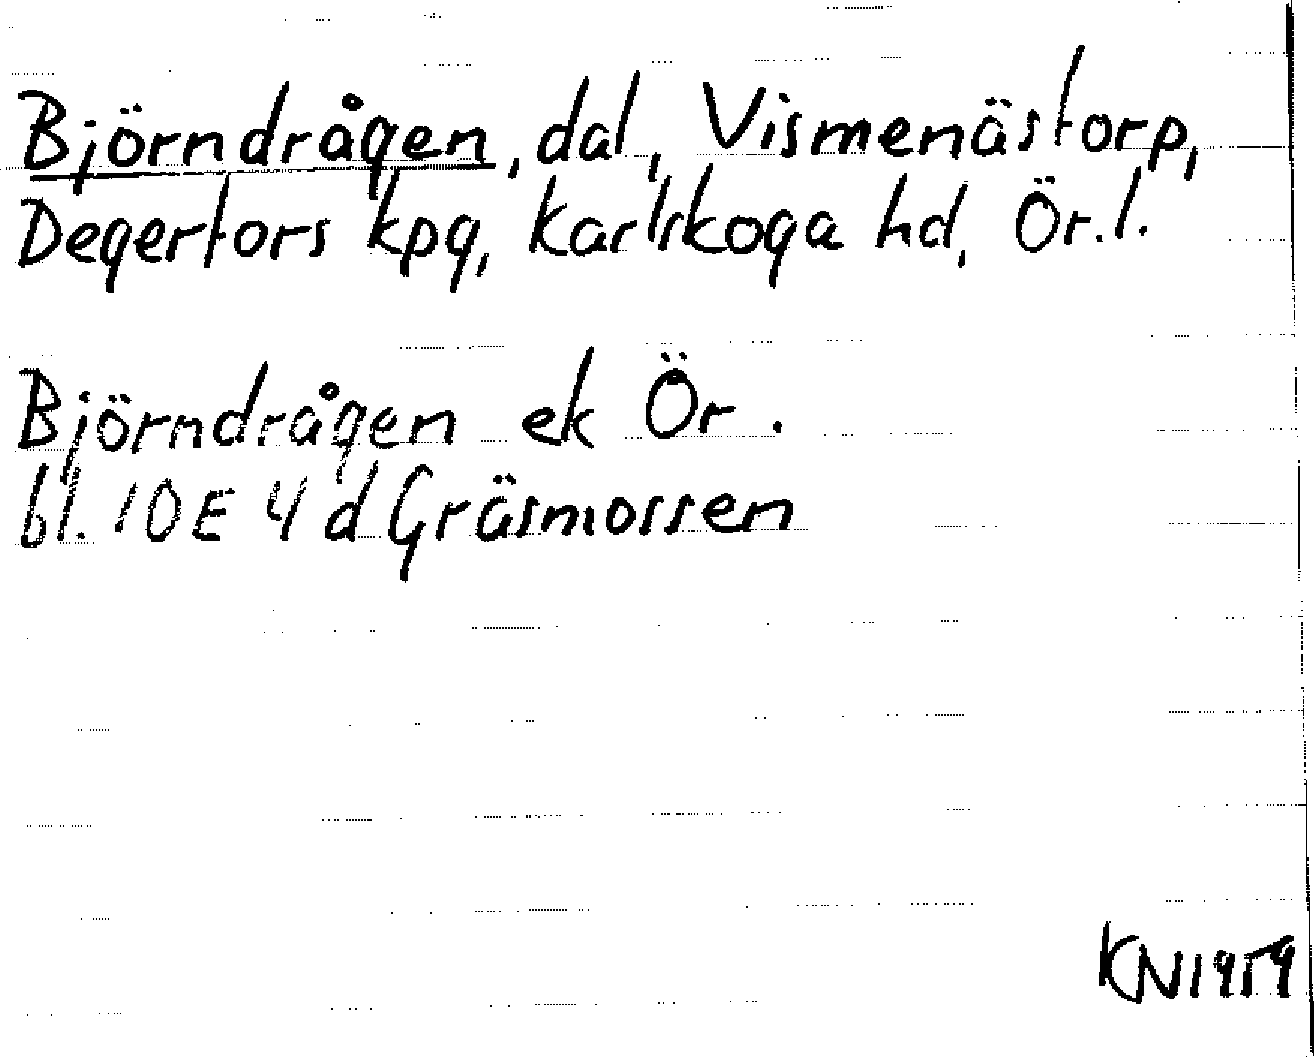 Björndrågen, dal, Vismenästorp,
Degerfors kpg, Karlskoga hd, Ör.l.
Björndrågen ek Ör.
bl. 10E 4d Gräsmossen
KN1959